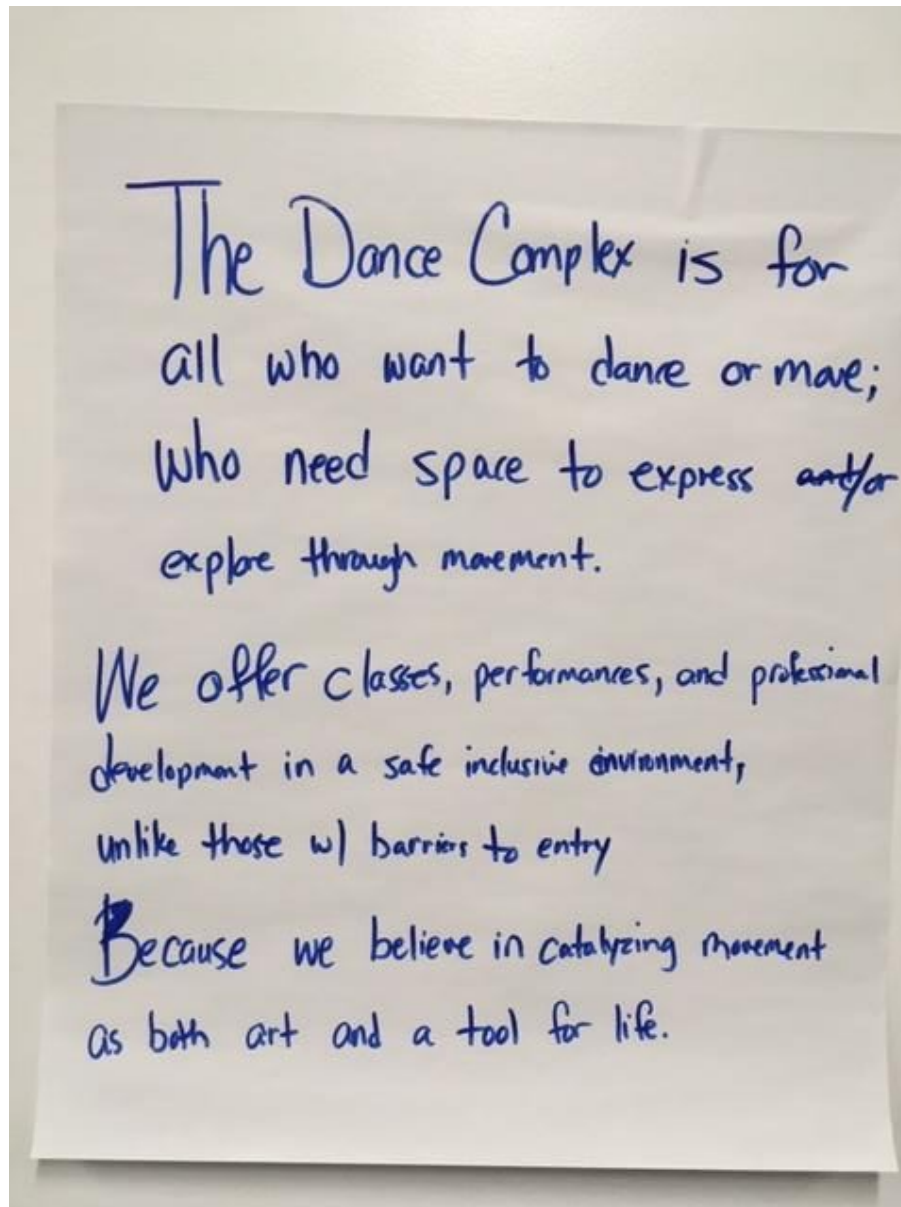 The Dance Complex is for
all who want to dance or move;
who need space to express and/or
explore through movement.
We offer classes, performances, and professional
development in a safe inclusive environment,
unlike those w/ barriers to entry
Because we believe in catalyzing movement
as both art and a tool for life.